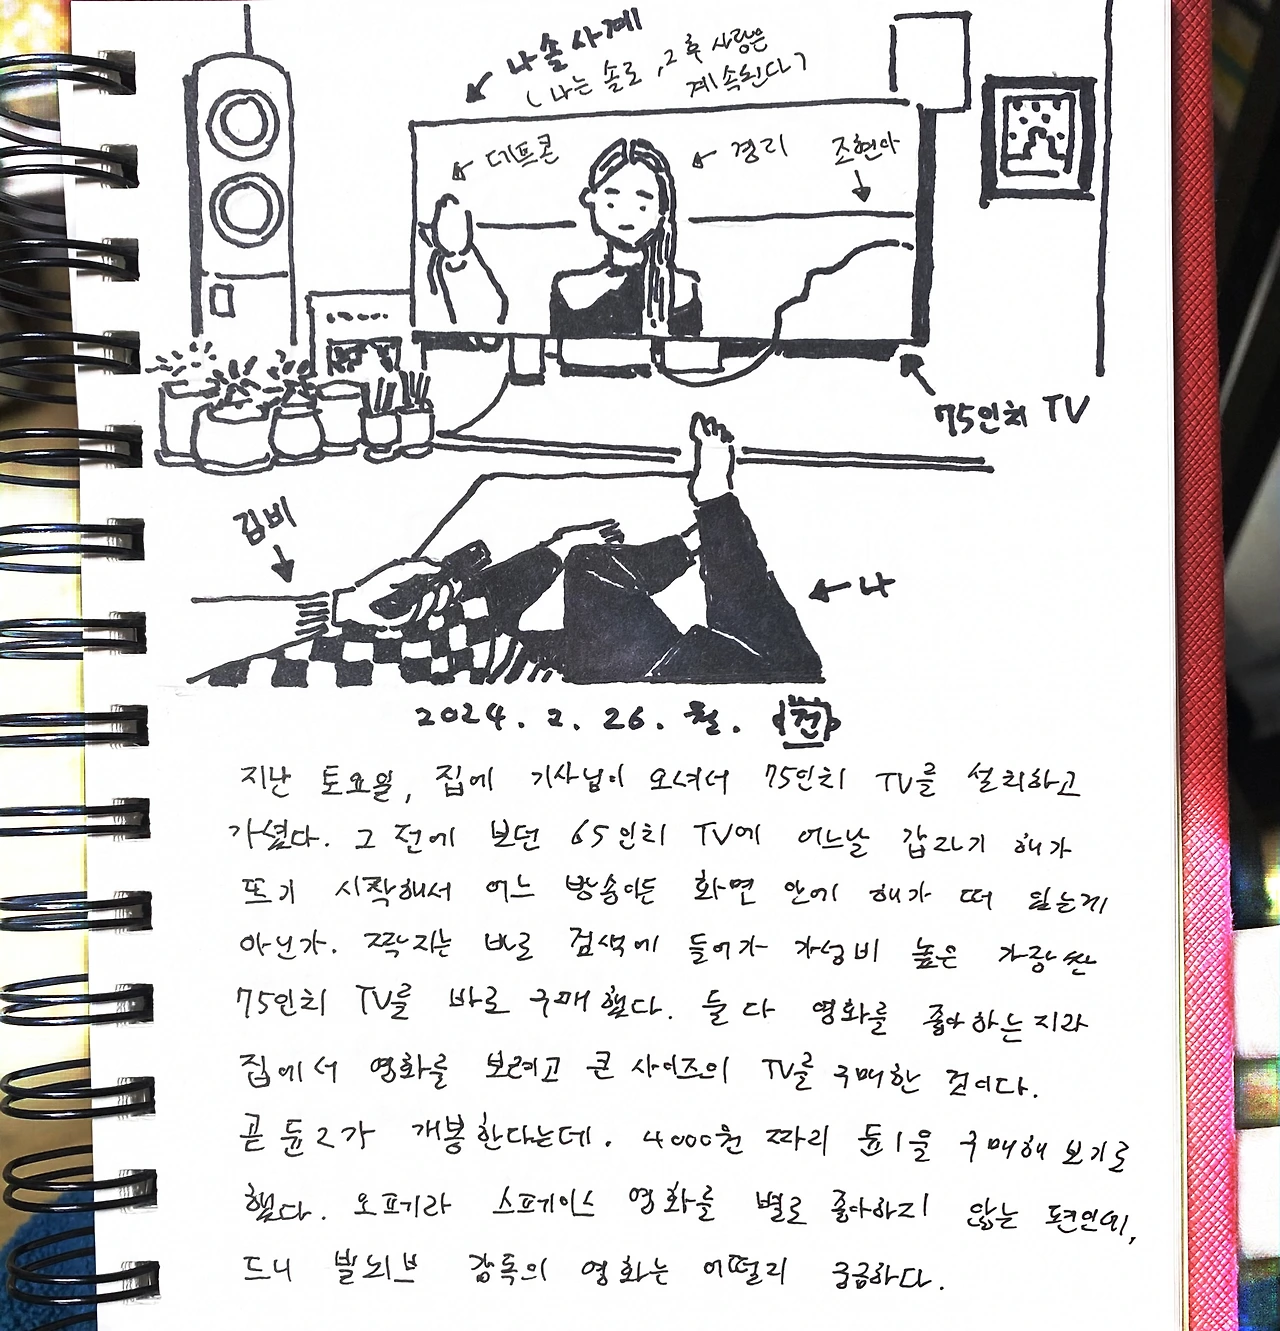 나솔사계
(나는 솔로, 그 후 사랑은
계속된다)
데프콘
경리
조현아
75인치 TV
김비
나
2024. 2. 26. 월.
지난 토요일, 집에 기사님이 오셔서 75인치 TV를 설치하고
가셨다. 그 전에 보던 65인치 TV에 어느날 갑자기 해가
뜨기 시작해서 어느 방송이든 화면 안에 해가 떠 있는게
아닌가. 짝지는 바로 검색에 들어가 가성비 높은 가장 싼
75인치 TV를 바로 구매했다. 둘 다 영화를 좋아하는지라
집에서 영화를 보려고 큰 사이즈의 TV를 구매한 것이다.
곧 듄2가 개봉한다는데. 4000원 짜리 듄1을 구매해 보기로
했다. 오페라 스페이스 영화를 별로 좋아하지 않는 편인데,
드니 빌뇌브 감독의 영화는 어떨지 궁금하다.